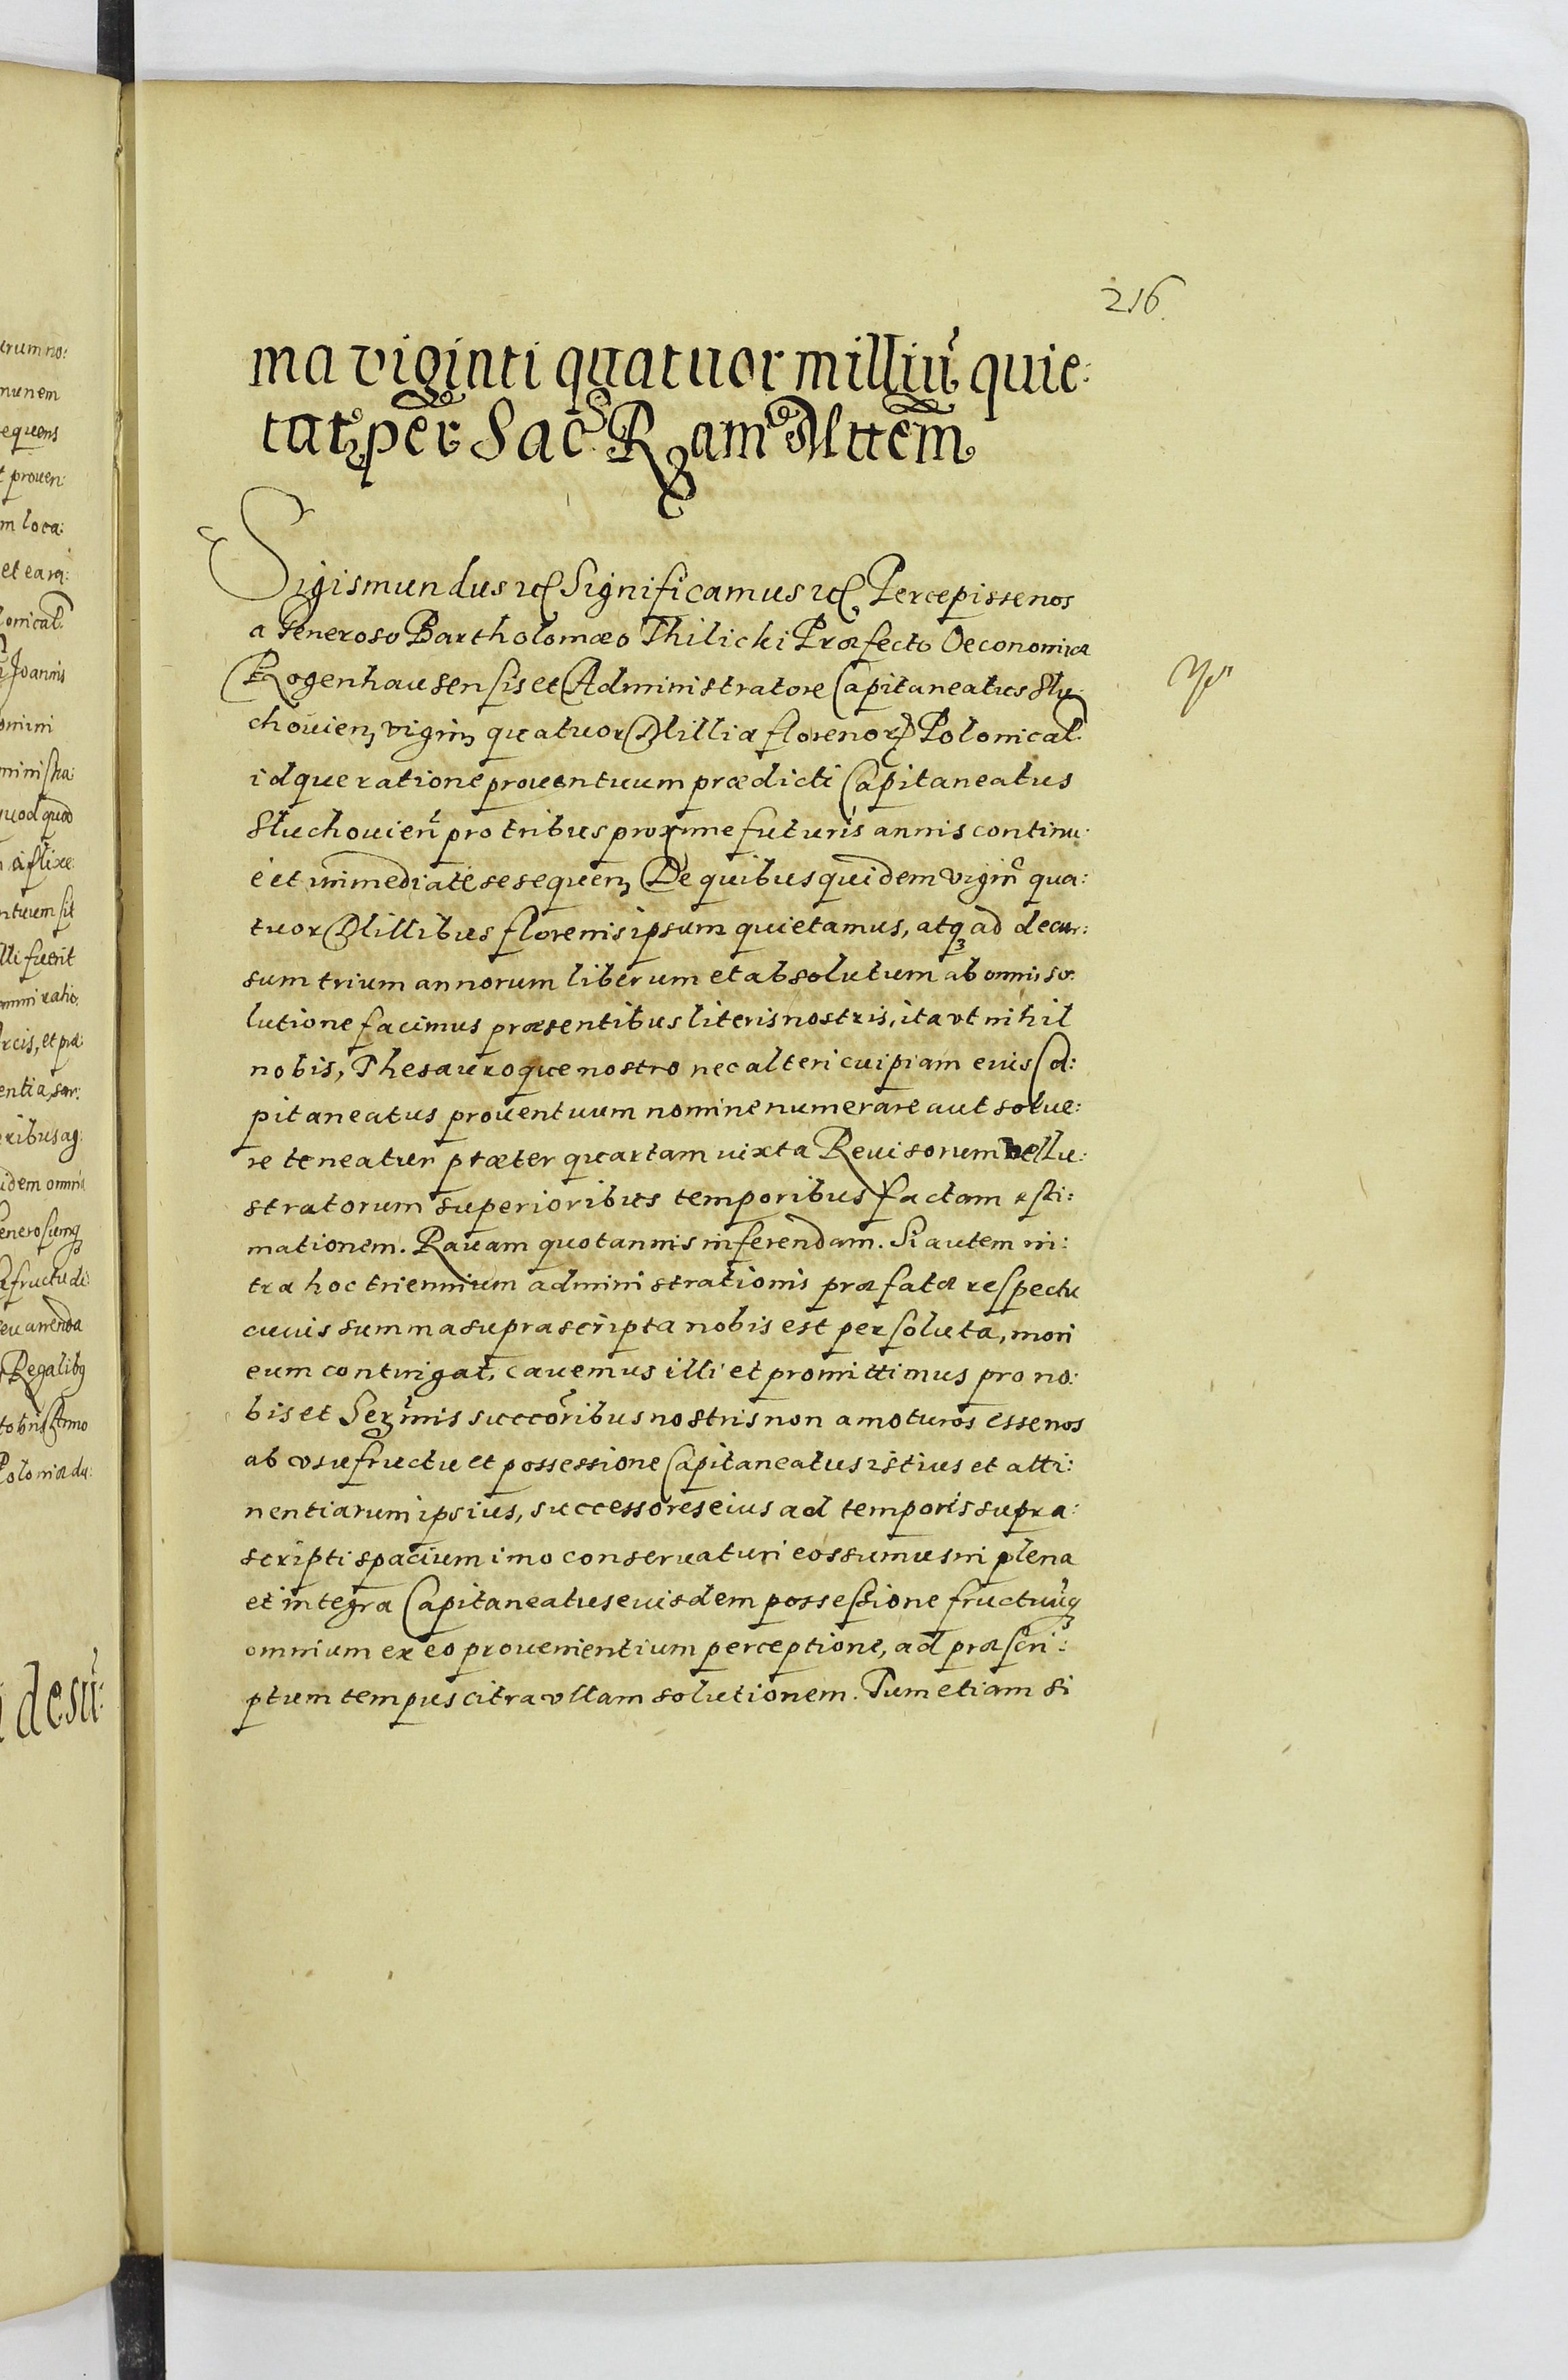 216.
ma viginti quatuor milliũ quie:
tat᷑ per Sac. R. am Mttẽm
Sigismundus etc. Significamus etc. Percepisse nos
a Generoso Bartholomæo Thilicki Præfecto Oeconomiæ
Rogenhausensis et Administratore Capitaneatus Stu:
chouien᷑ vigin᷑ quatuor Millia florenor᷑ Polonical.
idque ratione prouentuum prædicti Capitaneatus
Stuchouien᷑ pro tribus proxime futuris annis continu:
e et immediate se sequen᷑ De quibus quidem vigin᷑ qua:
tuor Millibus florenis ipsum quietamus, atq3 ad decur:
sum trium annorum liberum et absolutum ab omni so:
lutione facimus præsentibus literis nostris, ita vt nihil
nobis, Thesauroque nostro nec alteri cuipiam euis Ca:
pitaneatus prouentuum nomine numerare aut solue:
re teneatur præter quartam iuxta Reuisorum vel lu:
stratorum superioribus temporibus factam esti:
mationem. Rauam quotannis inferendam. Si autem in:
tra hoc triennium administrationis præfatæ respectu
cuius summa suprascripta nobis est persoluta, mori
eum contingat, cauemus illi et promittimus pro no:
bis et Ser᷑mis succõribus nostris non amoturos esse nos
ab vsufructu et possessione Capitaneatus istius et atti:
nentiarum ipsius, successores eius ad temporis supra:
scripti spacium imo conseruaturi eos sumus in plena
et integra Capitaneatus euisdem possessione fructuũq3
omnium ex eo prouenientium perceptione, ad præscri:
ptum tempus citra vllam solutionem. Tum etiam si
erum no:
munem
equens
t prouen:
m loca:
et earu:
lonical.
Joannis
omini
ministra:
quod quod
aflixe:
ntuum sit
lli fuerit
omni ratio:
rcis, et præ:
entia, ser:
eribus ag:
idem omnia
enerosumq3
fructu de:
eu arrenda
Regalibq
Anno
Poloniæ du:
desũ: